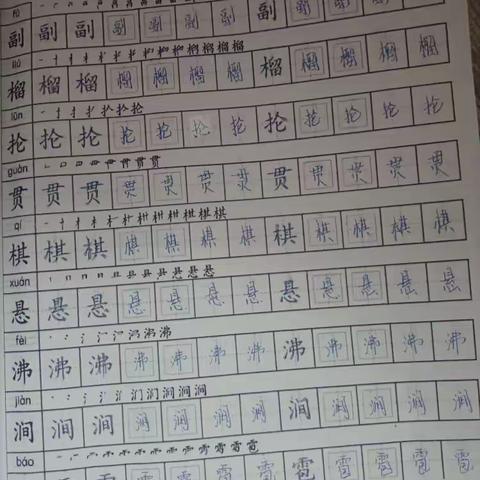 fù
副 副 副 副 副 副 副 副 副 副 副 副
liú
榴 榴 榴 榴 榴 榴 榴 榴 榴 榴 榴 榴
lūn
抡 抡 抡 抡 抡 抡 抡 抡 抡 抡 抡 抡
guàn
贯 贯 贯 贯 贯 贯 贯 贯 贯 贯 贯 贯
qí
棋 棋 棋 棋 棋 棋 棋 棋 棋 棋 棋 棋
xuán
悬 悬 悬 悬 悬 悬 悬 悬 悬 悬 悬 悬
fèi
沸 沸 沸 沸 沸 沸 沸 沸 沸 沸 沸 沸
jiàn
涧 涧 涧 涧 涧 涧 涧 涧 涧 涧 涧 涧
báo
雹 雹 雹 雹 雹 雹 雹 雹 雹